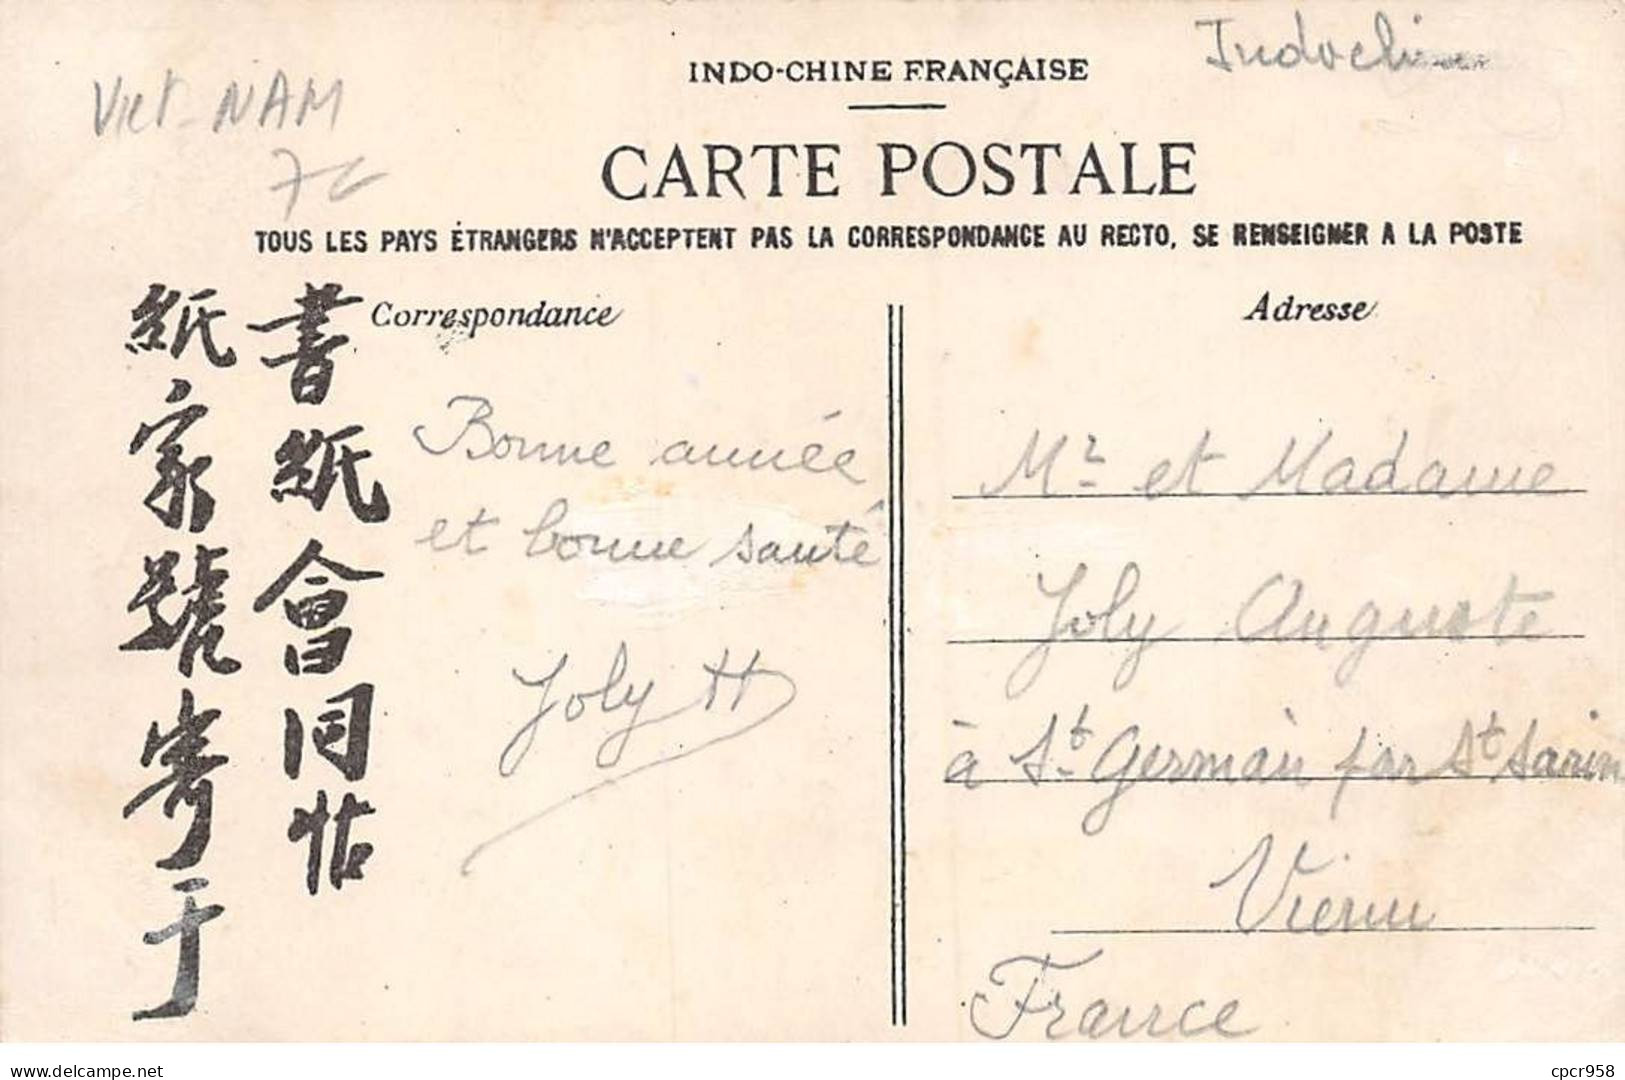 INDO-CHINE FRANÇAISE
Viet-NAM
CARTE POSTALE
TOUS LES PAYS ÉTRANGERS N'ACCEPTENT PAS LA CORRESPONDANCE AU RECTO, SE RENSEIGNER A LA POSTE
書紙會同帖
紙家號寄于
Correspondance
Bonne année
et bonne santé
Joly H
Adresse
Mr et Madame
Joly Auguste
à St Germain par St Savin
Vienne
France
delcampe.net
cpcr958